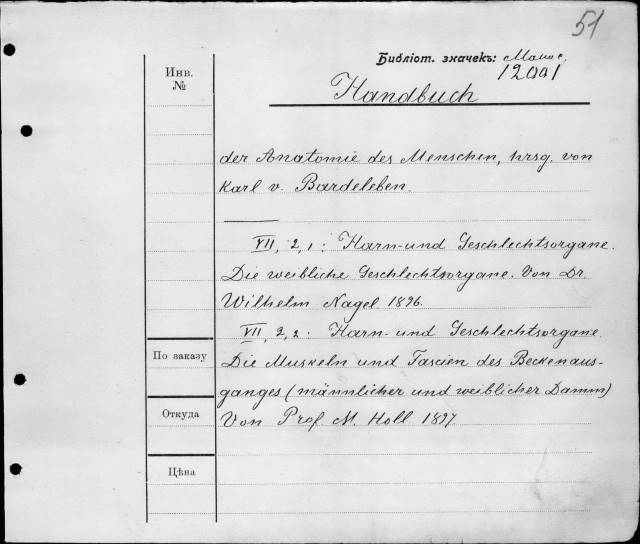 51
Библіот. значекъ:
12001
Инв.
№
Handbuch
der Anatomie des Menschen, hrsg. von
Karl v. Bardeleben.
VII, 2,1: Harn- und Geschlechtsorgane.
Die weibliche Geschlechtsorgane. Von Dr.
Wilhelm Nagel 1896.
VII, 2,2: Harn- und Geschlechtsorgane.
По заказу
Die Muskeln und Fascien des Beckenaus-
ganges (männlicher und weiblicher Damm)
Откуда
Von Prof. M. Holl 1897.
Цѣна